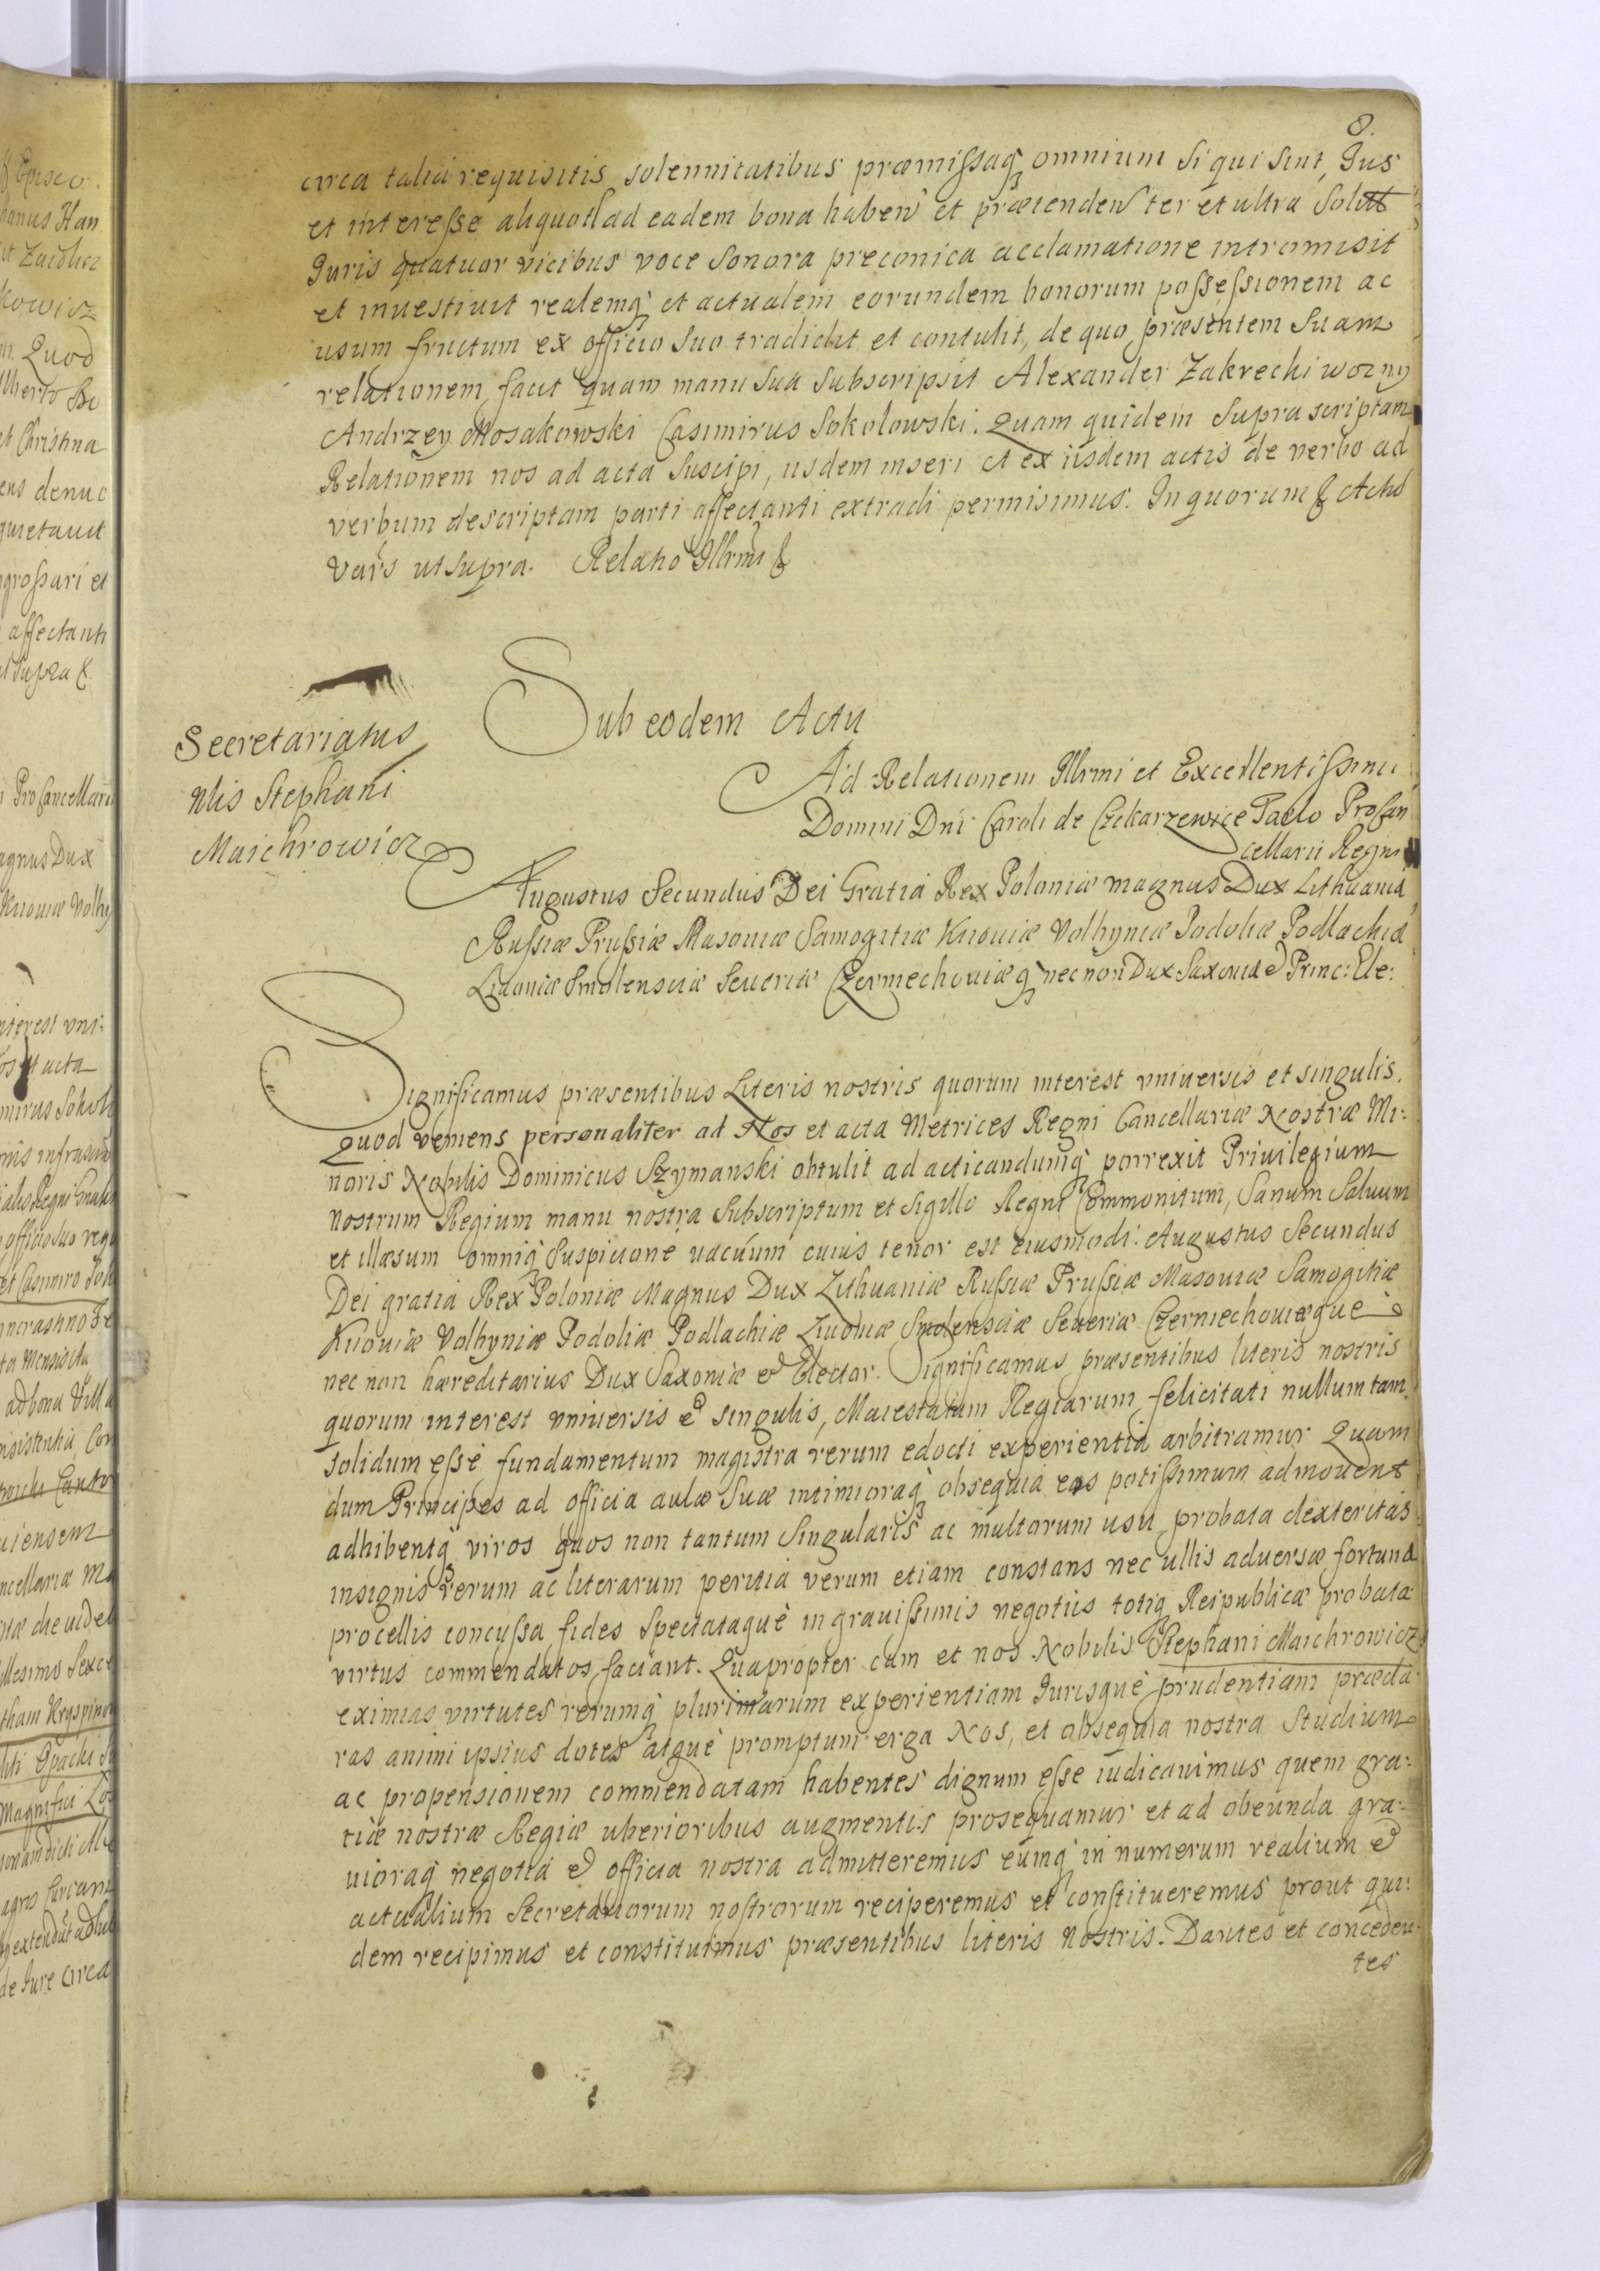 8.
circa talia requisitis solennitatibus præmissaq omnium si qui sint, Jus
et interesse aliquod ad eadem bona haben et prætenden ter et ultra Solitt
Juris quatuor vicibus voce sonora preconica acclamatione intromisit
et inuestiuit realemq et actualem eorundem bonorum possessionem ac
usum fructum ex officio suo tradidit et contulit, de quo præsentem suam
relationem facit quam manu sua subscripsit Alexander Zakrechi wozny
Andrzey Mosakowski Casimirus Sokolowski. Quam quidem supra scriptam
Relationem nos ad acta suscipi, iisdem inseri et ex iisdem actis de verbo ad
verbum descriptam parti affectanti extradi permisimus. In quorum & Actū
Vars ut supra. Relatio Illrmi &
Secretariatus
Nlis Stephani
Maichrowicz
Sub eodem Actu
Ad Relationem Illrmi et Excellentissimi
Domini Dni Caroli de Czekarzewice Tarlo ProCan
cellarii Regni
Augustus Secundus Dei Gratia Rex Poloniæ magnus Dux Lithuaniæ
Russiæ Prussiæ Masouiæ Samogitiæ Kiiouiæ Volhyniæ Podoliæ Podlachiæ
Liuoniæ Smolensciæ Seueriæ Czerniechouiæq nec non Dux Saxoniæ & Princ: Ele:
Significamus præsentibus Literis nostris quorum interest vniuersis et singulis.
Quod veniens personaliter ad Nos et acta Metrices Regni Cancellariæ Nostræ Mi:
noris Nobilis Dominicus Szymanski obtulit ad acticandumq porrexit Priuilegium
Nostrum Regium manu nostra subscriptum et Sigillo Regni Commonitum, Sanum Saluum
et illæsum omniq suspicione uacuum cuius tenor est eiusmodi: Augustus Secundus
Dei gratia Rex Poloniæ Magnus Dux Lithuaniæ Russiæ Prussiæ Masouiæ Samogitiæ
Kiiouiæ Volhyniæ Podoliæ Podlachiæ Liuoniæ Smolensciæ Seueriæ Czerniechouiæque
nec non hæreditarius Dux Saxoniæ & Elector. Significamus præsentibus literis nostris
quorum interest vniuersis & singulis, Maiestatum Regiarum felicitati nullum tam
solidum esse fundamentum magistra rerum edocti experientia arbitramur Quam
dum Principes ad officia aulæ Suæ intimioraq obsequia eos potissimum admouent
adhibentq viros quos non tantum singularis ac multarum usu probata dexteritas
insignis rerum ac literarum peritia verum etiam constans nec ullis aduersæ fortunæ
procellis concussa fides spectataquè in grauissimis negotiis totiq Reipublicæ probata
virtus commendatos faciant. Quapropter cum et nos Nobilis Stephani Maichrowicz
eximias virtutes rerumq plurimarum experientiam Jurisquè prudentiam præcla
ras animi ipsius dotes atquè promptum erga Nos, et obsequia nostra studium
ac propensionem commendatam habentes dignum esse iudicauimus quem gra:
tiæ nostræ Regiæ uberioribus augmentis prosequamur et ad obeunda gra:
uioraq negotia & officia nostra admitteremus eumq in numerum realium &
actualium Secretariorum nostrorum reciperemus et constitueremus prout qui:
dem recipimus et constituimus præsentibus literis Nostris. Dantes et conceden
tes